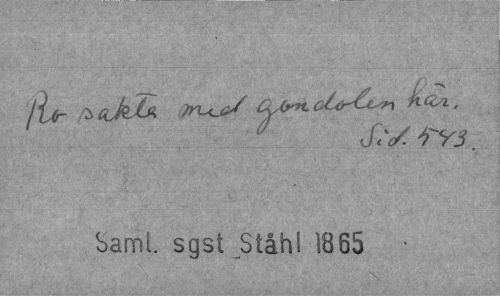 Ro sakta med gondolen här.
Sid. 543.
Saml. sgst Ståhl 1865